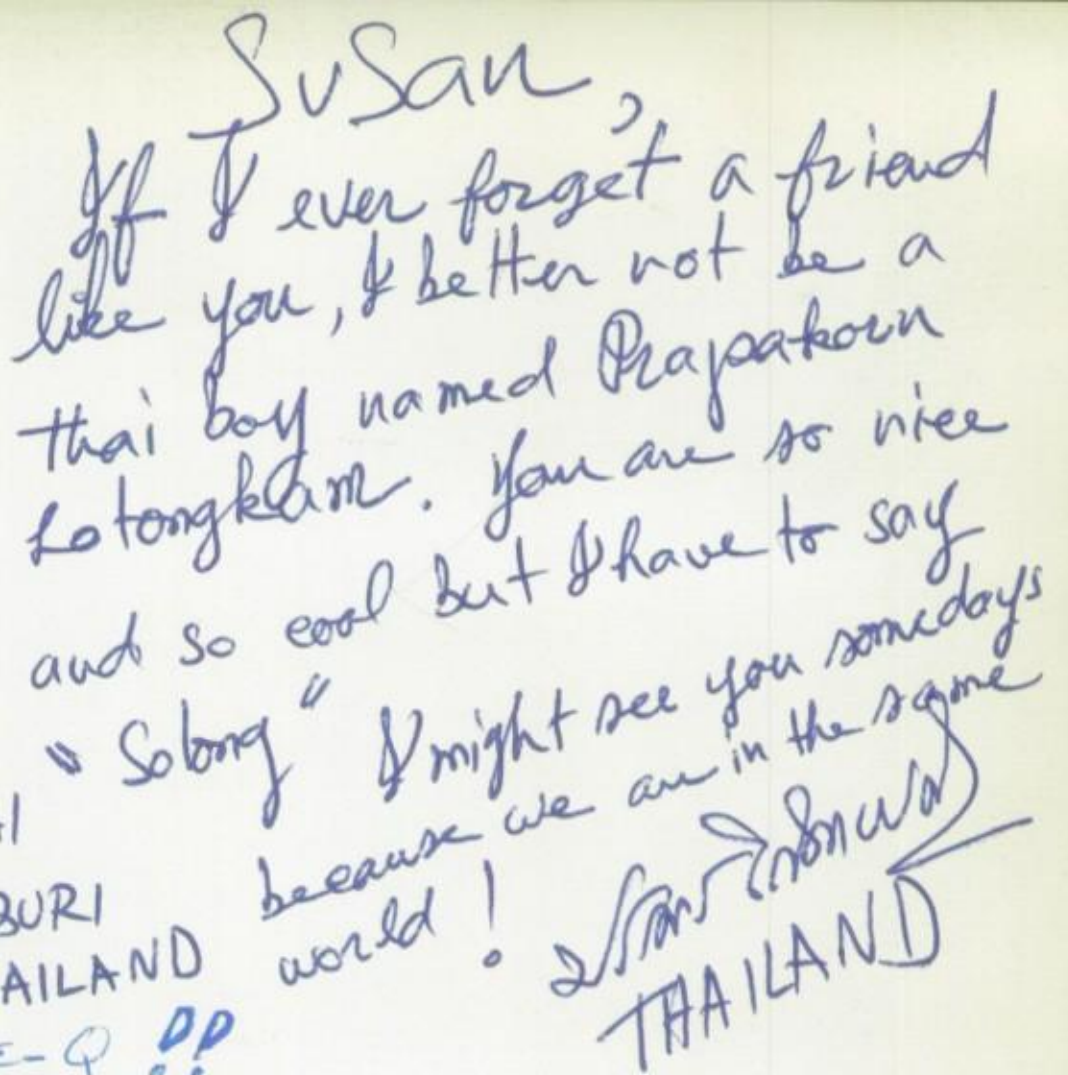 SuSan,
If I ever forget a friend
like you, I better not be a
thai boy named Prapakorn
Lotongkam. You are so nice
and so cool but I have to say
"Solong" I might see you somedays
because we are in the same
world!
THAILAND
BURI
AILAND
E-Q !!